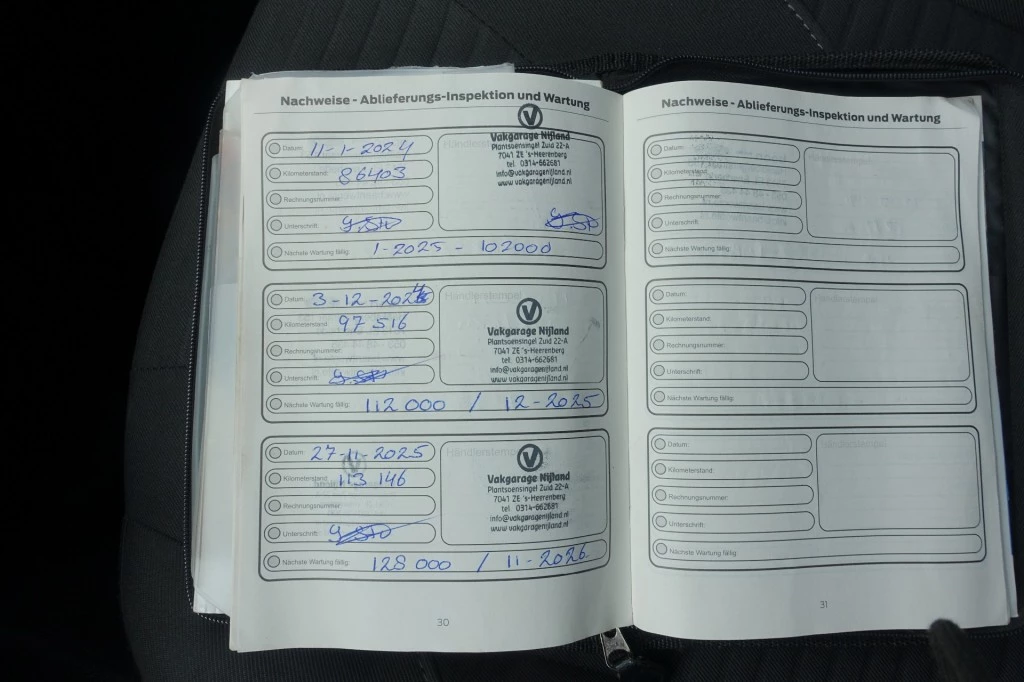 Nachweise - Ablieferungs-Inspektion und Wartung
Datum: 11-1-2024
Kilometerstand: 86403
Rechnungsnummer:
Unterschrift:
Nächste Wartung fällig: 1-2025 - 102000
Händlerstempel
Vakgarage Nijland
Plantsoensingel Zuid 22-A
7041 ZE 's-Heerenberg
tel. 0314-662681
info@vakgaragenijland.nl
www.vakgaragenijland.nl
Datum: 3-12-2024
Kilometerstand: 97 516
Rechnungsnummer:
Unterschrift:
Nächste Wartung fällig: 112 000 / 12-2025
Händlerstempel
Vakgarage Nijland
Plantsoensingel Zuid 22-A
7041 ZE 's-Heerenberg
tel. 0314-662681
info@vakgaragenijland.nl
www.vakgaragenijland.nl
Datum: 27-11-2025
Kilometerstand: 113 146
Rechnungsnummer:
Unterschrift:
Nächste Wartung fällig: 128 000 / 11-2026
Händlerstempel
Vakgarage Nijland
Plantsoensingel Zuid 22-A
7041 ZE 's-Heerenberg
tel. 0314-662681
info@vakgaragenijland.nl
www.vakgaragenijland.nl
30
Nachweise - Ablieferungs-Inspektion und Wartung
Datum:
Kilometerstand:
Rechnungsnummer:
Unterschrift:
Nächste Wartung fällig:
Händlerstempel
Datum:
Kilometerstand:
Rechnungsnummer:
Unterschrift:
Nächste Wartung fällig:
Händlerstempel
Datum:
Kilometerstand:
Rechnungsnummer:
Unterschrift:
Nächste Wartung fällig:
Händlerstempel
31